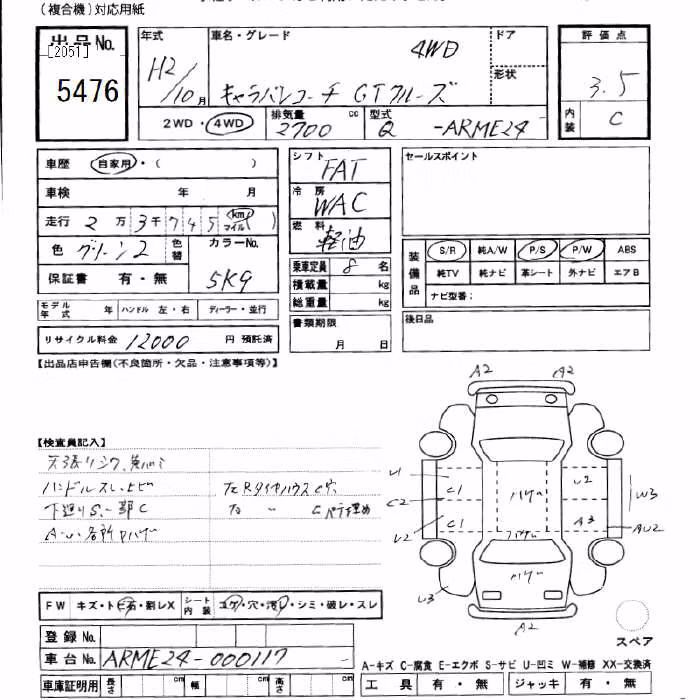 (複合機)対応用紙
出品No.
[2051]
5476
年式 H2/10月
車名・グレード 4WD
キャラバンコーチ GTクルーズ
ドア
形状
2WD・4WD
排気量 2700 cc
型式 Q -ARME24
評価点
3.5
内装 C
車歴 自家用・( )
車検 年 月
走行 2万3千745 km(マイル)
色 グリーン2 色替
カラーNo. 5K9
保証書 有・無
モデル年式 年 ハンドル 左・右 ディーラー・並行
リサイクル料金 12000 円 預託済
シフト FAT
冷房 WAC
燃料 軽油
乗車定員 8 名
積載量 kg
総重量 kg
書類期限
月 日
セールスポイント
装備品
S/R 純A/W P/S P/W ABS
純TV 純ナビ 革シート 外ナビ エアB
ナビ型番:
後日品
【出品店申告欄(不良箇所・欠品・注意事項等)】
【検査員記入】
ハンドルスレ
下廻りS、一部C
A・U各所
A2 A2
U1
C1
U2
C2
C1
A3
W3
U2
AU2
U3
A2
スペア
FW キズ・トビ石・割レX シート内装 コゲ・穴・汚レ・シミ・破レ・スレ
登録No.
車台No. ARME24-000117
車庫証明用 長さ cm 幅 cm 高さ cm
A-キズ C-腐食 E-エクボ S-サビ U-凹ミ W-補修 XX-交換済
工具 有・無 ジャッキ 有・無